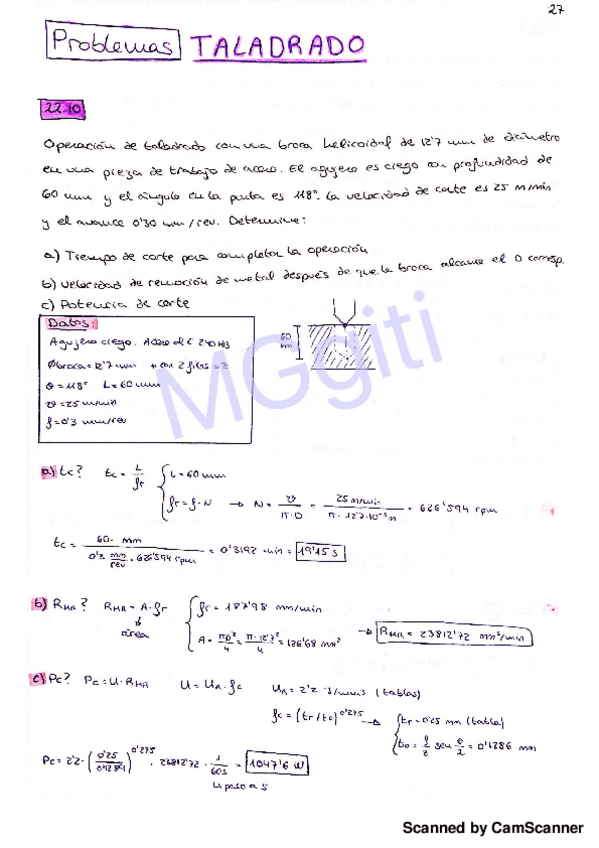 27
Problemas TALADRADO
22.10
Operación de taladrado con una broca helicoidal de 12'7 mm de diámetro
en una pieza de trabajo de acero. El agujero es ciego con profundidad de
60 mm y el ángulo en la punta es 118º. La velocidad de corte es 25 m/min
y el avance 0'30 mm/rev. Determine:
a) Tiempo de corte para completar la operación
b) Velocidad de remoción de metal después de que la broca alcance el D corresp.
c) Potencia de corte
Datos:
Agujero ciego. Acero al C 240 HB
Øbroca = 12'7 mm con 2 filos = z
θ = 118º L = 60 mm
v = 25 m/min
f = 0'3 mm/rev
60 mm
MGgiti
a) tc? tc = L/fr { L = 60 mm
fr = f·N → N = v/(π·D) = 25 m/min / (π·12'7·10⁻³ m) = 626'594 rpm
tc = 60 mm / (0'3 mm/rev · 626'594 rpm) = 0'3192 min = 19'15 s
b) RMR? RMR = A·fr { fr = 187'98 mm/min
área
A = πD²/4 = π·12'7²/4 = 126'68 mm² → RMR = 23812'72 mm³/min
c) Pc? Pc = U·RMR U = UA·fc UA = 2'2 J/mm3 (tablas)
fc = (tr/tc)^0'275 → { tr = 0'25 mm (tabla)
to = f/z sen θ/2 = 0'1286 mm
Pc = 2'2 · · 23812'72 · 1/60s = 1047'6 W
paso a s
Scanned by CamScanner